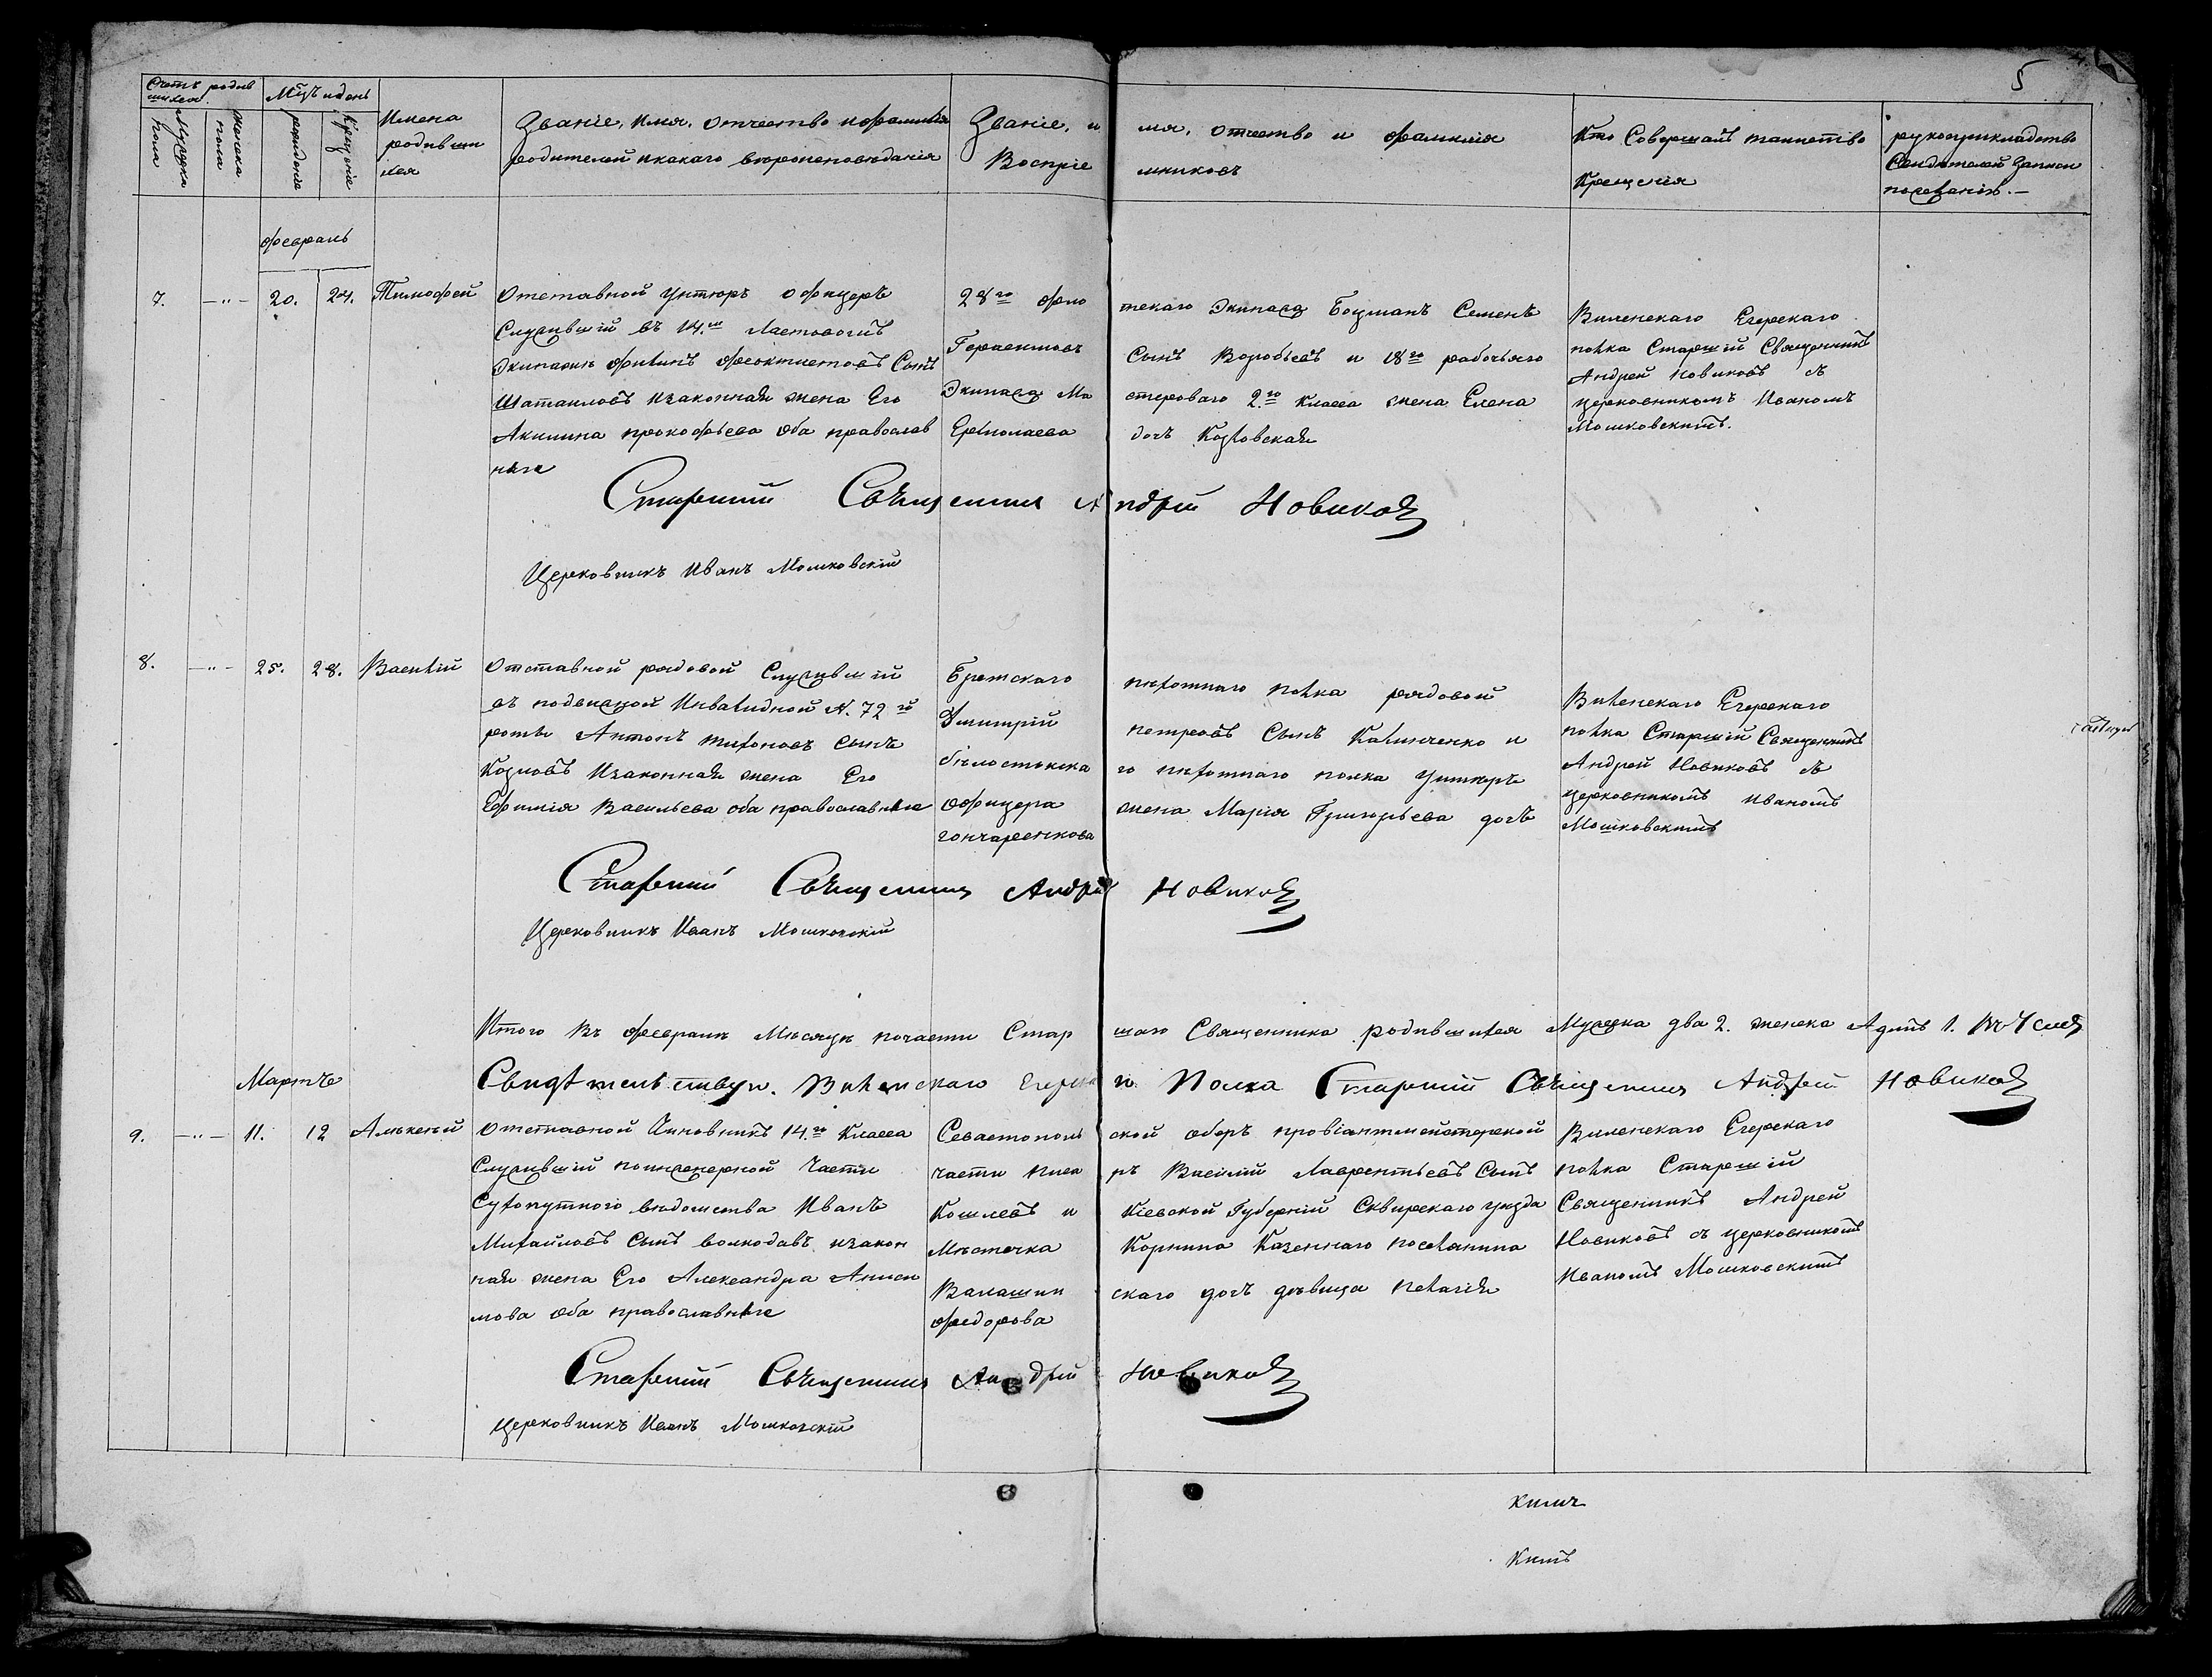 5
Счетъ родив
шихся.
Мцъ и день
Мужеска пола
Женска пола
рожденіе
Крещеніе
Имена
родивши
хся
Званіе, Имя, Отчество и фамилія
родителей и какаго вероисповеданія
Званіе, имя, отчество и фамилія
Воспріемниковъ
Кто Совершалъ таинство
Крещенія
рукоприкладство
Свидетелей записи
по желанію.—
февраль
7. —"— 20. 24. Тимофей
Отставной унтеръ офицеръ
Служившій въ 14.м Ластовомъ
Экипаже Филипъ Феоктистовъ Сынъ
Шатаиловъ и законная жена Его
Акилина прокофьева оба православ
ныя
28го флотскаго Экипажа Боцманъ Семенъ
Герасимовъ Сынъ Воробьевъ и 18го рабочьяго
Экипажа Мастероваго 2.го класса жена Елена
Ермолаева дочь Козловская
Виленскаго Егерскаго
полка Старшій Священникъ
Андрей Новиковъ съ
церковникомъ Иваномъ
Мошковскимъ.
Старшій Священникъ Андрей Новиковъ
Церковникъ Иванъ Мошковскій
8. —"— 25. 28. Василій
Отставной рядовой Служившій
въ подвижной Инвалидной N. 72й
роты Антонъ тихоновъ сынъ
Козловъ И законная жена Его
Ефимія Васильева оба православныя
Брестскаго пехотнаго полка рядовой
Дмитрій петровъ Сынъ Калинченко и
белостокскаго пехотнаго полка Унтеръ
Офицера жена Марія Григорьева дочь
гончаренкова
Виленскаго Егерскаго
полка Старшій Священникъ
Андрей Новиковъ съ
церковникомъ Иваномъ
Мошковскимъ
Старшій Священникъ Андрей Новиковъ
Церковникъ Иванъ Мошковскій
Итого въ феврале Месяце по части Старшаго Священника родившихся Мужска два 2. женска Адинъ 1.
Мартъ
Свидетельствую. Виленскаго Егерскаго Полка Старшій Священникъ Андрей Новиковъ
9. —"— 11. 12 Алексей
Отставной Чиновникъ 14.го Класса
Служившій по инженерной Части
Сухопутного ведомства Иванъ
Михайловъ Сынъ волкодавъ и закон
ная жена Его Александра Аниси
мова Оба православныя
Севастопольской оберъ провіантмейстерской
части писаръ Василій Лаврентьевъ Сынъ
Кошлевъ и Кіевской Губерніи Сквирскаго уезда
Местечка Корнина Казеннаго поселянина
Федорова Валашинскаго дочь девица пелагія
Виленскаго Егерскаго
полка Старшій
Священникъ Андрей
Новиковъ съ церковникомъ
Иваномъ Мошковскимъ
Старшій Священникъ Андрей Новиковъ
Церковникъ Иванъ Мошковскій